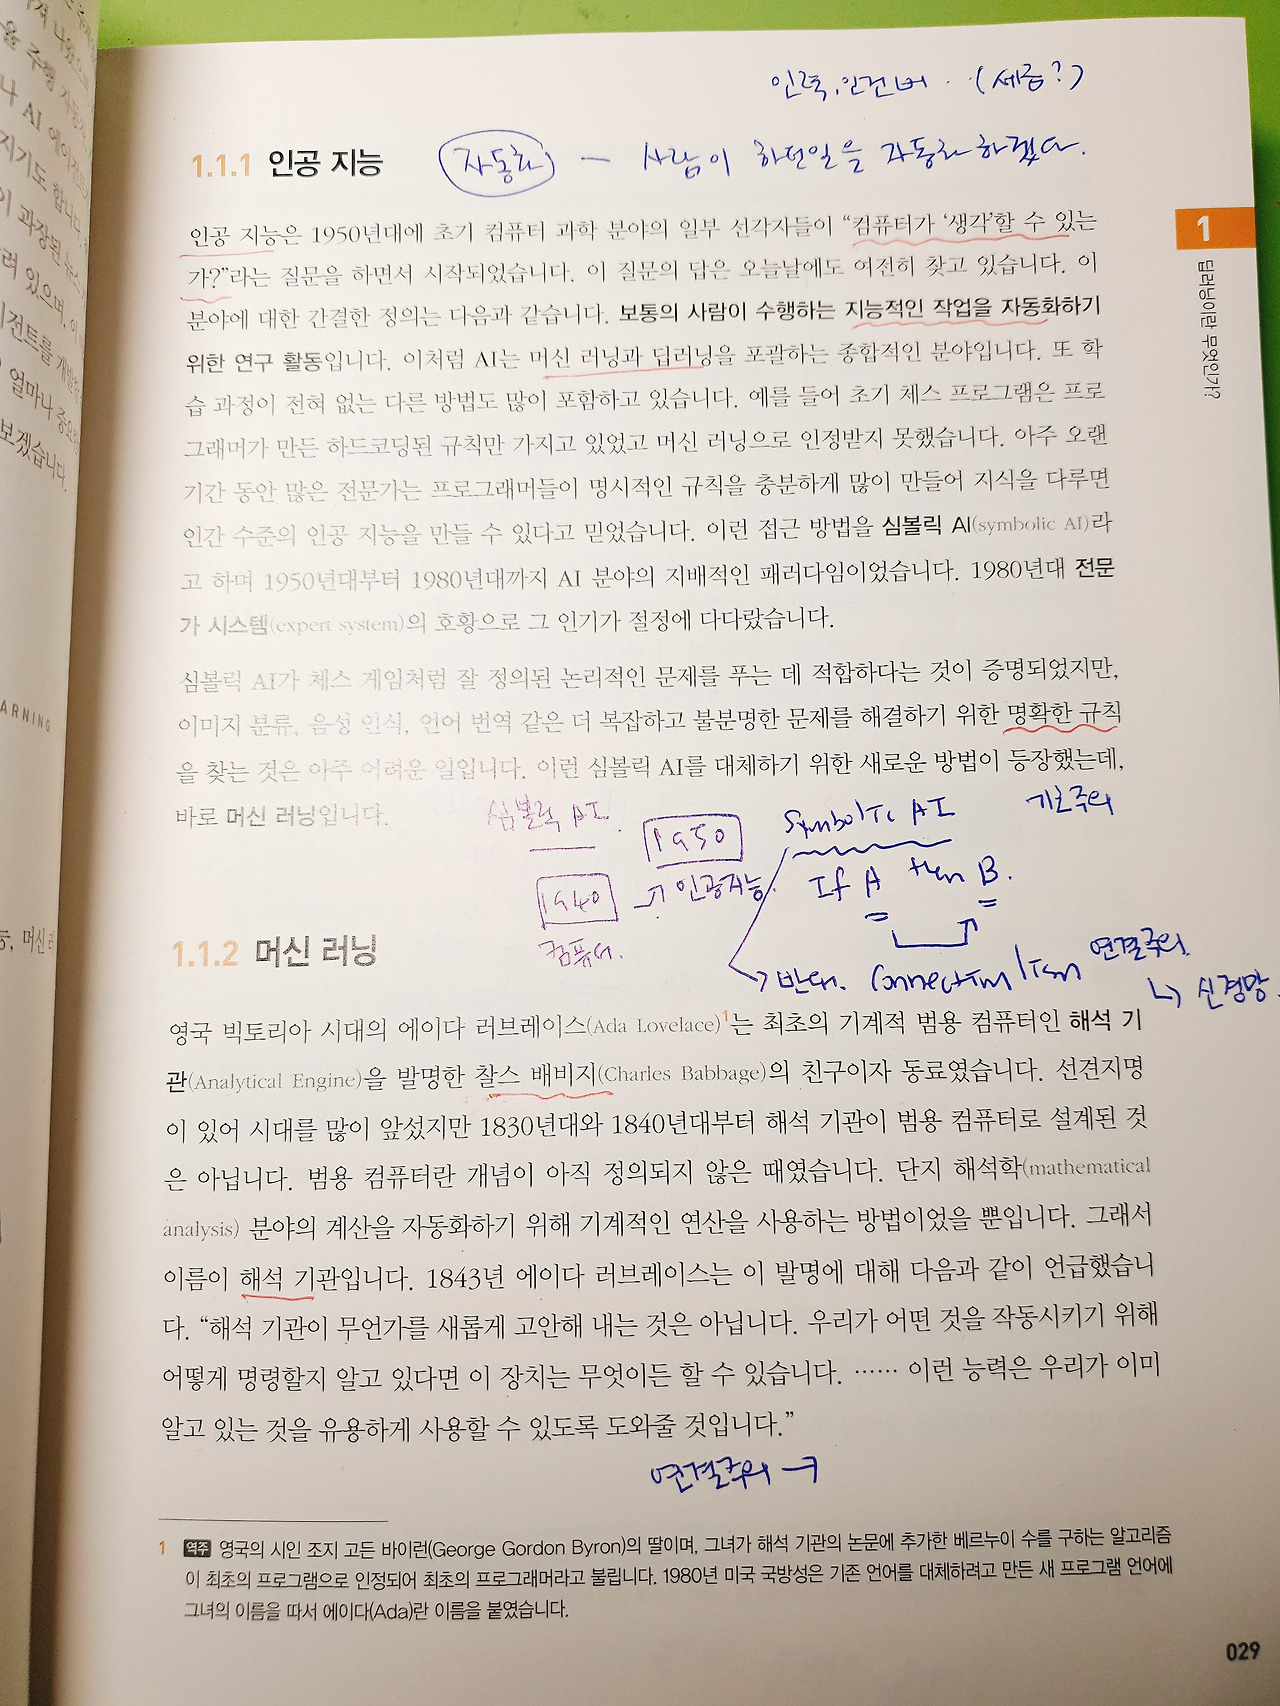 인력, 인건비 (세금?)
1.1.1 인공 지능
자동화 — 사람이 하던일을 자동화 하겠다.
인공 지능은 1950년대에 초기 컴퓨터 과학 분야의 일부 선각자들이 “컴퓨터가 ‘생각’할 수 있는
가?”라는 질문을 하면서 시작되었습니다. 이 질문의 답은 오늘날에도 여전히 찾고 있습니다. 이
분야에 대한 간결한 정의는 다음과 같습니다. 보통의 사람이 수행하는 지능적인 작업을 자동화하기
위한 연구 활동입니다. 이처럼 AI는 머신 러닝과 딥러닝을 포괄하는 종합적인 분야입니다. 또 학
습 과정이 전혀 없는 다른 방법도 많이 포함하고 있습니다. 예를 들어 초기 체스 프로그램은 프로
그래머가 만든 하드코딩된 규칙만 가지고 있었고 머신 러닝으로 인정받지 못했습니다. 아주 오랜
기간 동안 많은 전문가는 프로그래머들이 명시적인 규칙을 충분하게 많이 만들어 지식을 다루면
인간 수준의 인공 지능을 만들 수 있다고 믿었습니다. 이런 접근 방법을 심볼릭 AI(symbolic AI)라
고 하며 1950년대부터 1980년대까지 AI 분야의 지배적인 패러다임이었습니다. 1980년대 전문
가 시스템(expert system)의 호황으로 그 인기가 절정에 다다랐습니다.
심볼릭 AI가 체스 게임처럼 잘 정의된 논리적인 문제를 푸는 데 적합하다는 것이 증명되었지만,
이미지 분류, 음성 인식, 언어 번역 같은 더 복잡하고 불분명한 문제를 해결하기 위한 명확한 규칙
을 찾는 것은 아주 어려운 일입니다. 이런 심볼릭 AI를 대체하기 위한 새로운 방법이 등장했는데,
바로 머신 러닝입니다.
심볼릭 AI.
1950
Symbolic AI
기호주의
1940
→ 인공지능.
If A then B.
컴퓨터.
→ 반대. connectionism 연결주의
↳ 신경망.
1.1.2 머신 러닝
영국 빅토리아 시대의 에이다 러브레이스(Ada Lovelace)1는 최초의 기계적 범용 컴퓨터인 해석 기
관(Analytical Engine)을 발명한 찰스 배비지(Charles Babbage)의 친구이자 동료였습니다. 선견지명
이 있어 시대를 많이 앞섰지만 1830년대와 1840년대부터 해석 기관이 범용 컴퓨터로 설계된 것
은 아닙니다. 범용 컴퓨터란 개념이 아직 정의되지 않은 때였습니다. 단지 해석학(mathematical
analysis) 분야의 계산을 자동화하기 위해 기계적인 연산을 사용하는 방법이었을 뿐입니다. 그래서
이름이 해석 기관입니다. 1843년 에이다 러브레이스는 이 발명에 대해 다음과 같이 언급했습니
다. “해석 기관이 무언가를 새롭게 고안해 내는 것은 아닙니다. 우리가 어떤 것을 작동시키기 위해
어떻게 명령할지 알고 있다면 이 장치는 무엇이든 할 수 있습니다. …… 이런 능력은 우리가 이미
알고 있는 것을 유용하게 사용할 수 있도록 도와줄 것입니다.”
연결주의 →
1 역주 영국의 시인 조지 고든 바이런(George Gordon Byron)의 딸이며, 그녀가 해석 기관의 논문에 추가한 베르누이 수를 구하는 알고리즘
이 최초의 프로그램으로 인정되어 최초의 프로그래머라고 불립니다. 1980년 미국 국방성은 기존 언어를 대체하려고 만든 새 프로그램 언어에
그녀의 이름을 따서 에이다(Ada)란 이름을 붙였습니다.
1
딥러닝이란 무엇인가?
029